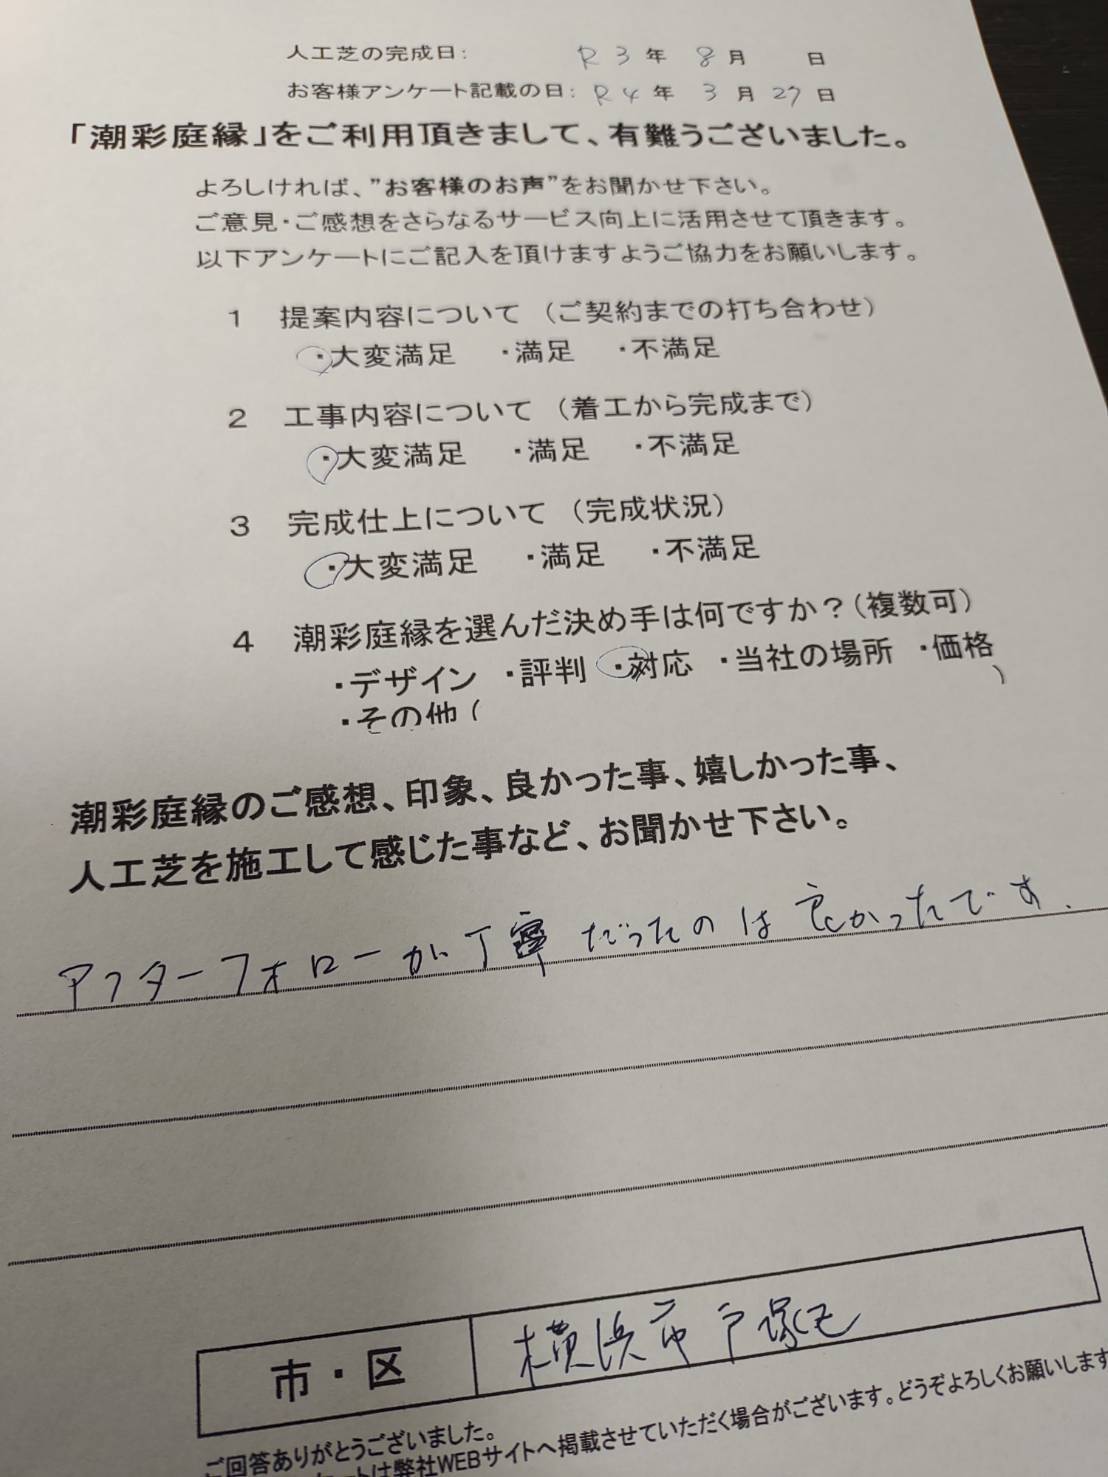 人工芝の完成日: R3年 8月 日
お客様アンケート記載の日: R4年 3月27日
「潮彩庭縁」をご利用頂きまして、有難うございました。
よろしければ、"お客様のお声"をお聞かせ下さい。
ご意見・ご感想をさらなるサービス向上に活用させて頂きます。
以下アンケートにご記入を頂けますようご協力をお願いします。
1 提案内容について (ご契約までの打ち合わせ)
・大変満足 ・満足 ・不満足
2 工事内容について (着工から完成まで)
・大変満足 ・満足 ・不満足
3 完成仕上について (完成状況)
・大変満足 ・満足 ・不満足
4 潮彩庭縁を選んだ決め手は何ですか?(複数可)
・デザイン ・評判 ・対応 ・当社の場所 ・価格
・その他( )
潮彩庭縁のご感想、印象、良かった事、嬉しかった事、
人工芝を施工して感じた事など、お聞かせ下さい。
アフターフォローが丁寧だったのは良かったです.
市・区 横浜市戸塚区
ご回答ありがとうございました。
ートは弊社WEBサイトへ掲載させていただく場合がございます。どうぞよろしくお願いします